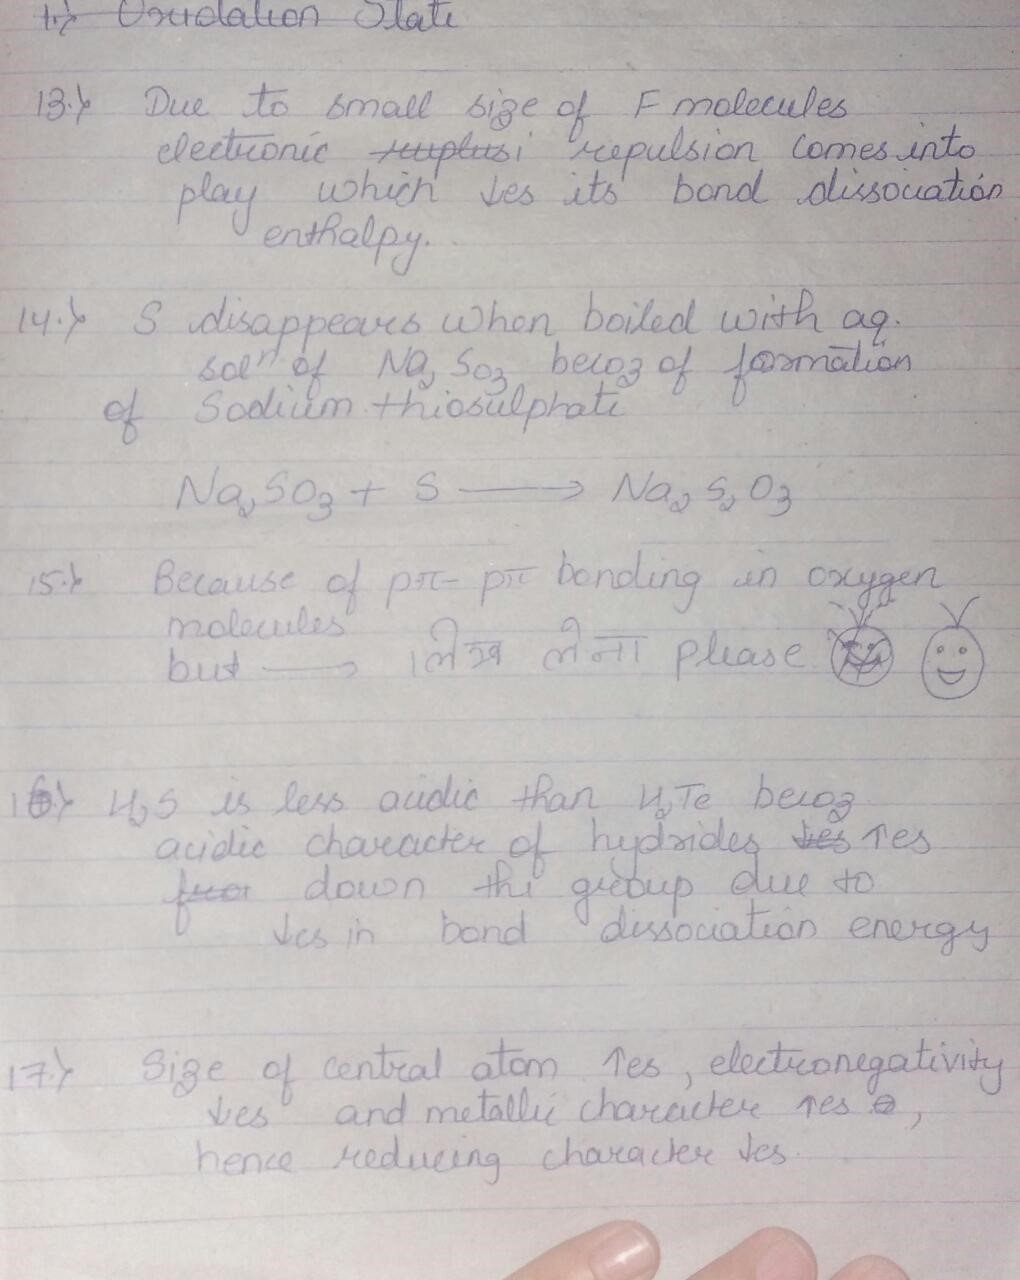 1.) Oxidation State
13.) Due to small size of F molecules
electronic repulsion comes into
play which ↓es its bond dissociation
enthalpy.
14.) S disappears when boiled with aq.
solⁿ of Na₂SO₃ becoz of formation
of Sodium thiosulphate
Na₂SO₃ + S ⟶ Na₂S₂O₃
15.) Because of pπ-pπ bonding in oxygen
molecules
but ⟶ लिख लेना please
16.) H₂S is less acidic than H₂Te becoz
acidic character of hydrides ↓es ↑es
down the group due to
↓es in bond dissociation energy
17.) Size of central atom ↑es, electronegativity
↓es and metallic character ↑es,
hence reducing character ↓es.